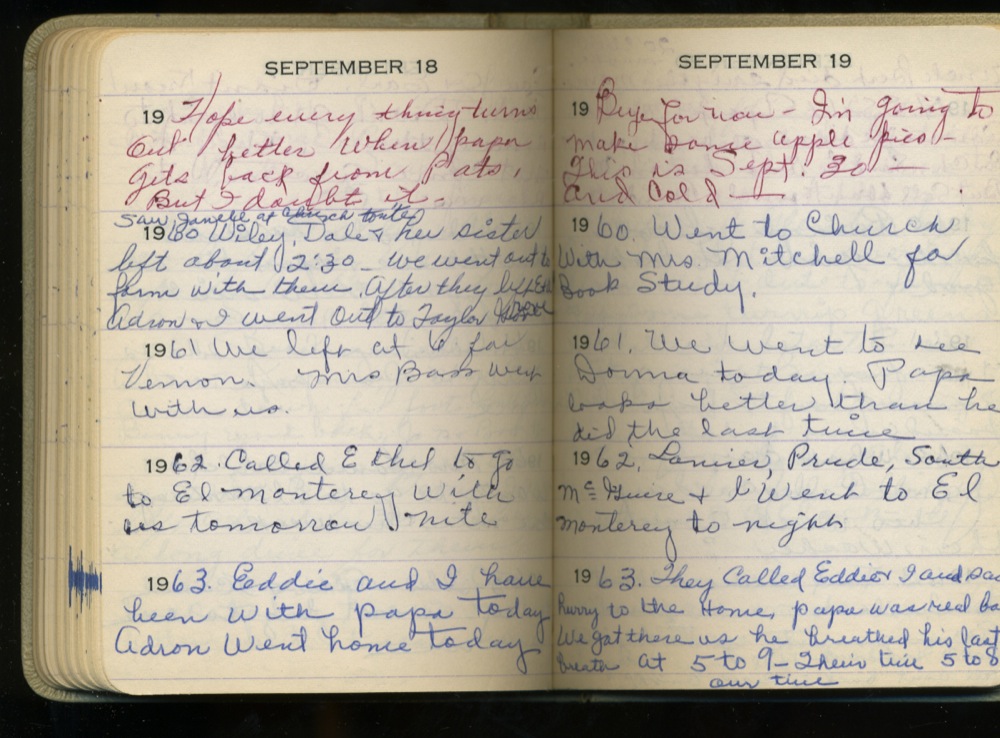 SEPTEMBER 18
19 Hope every thing turns
Out better when papa
Gets back from Pats,
But I doubt it.
Saw Janell at Church
1960 Wiley, Dale & her sister
left about 12:30 - We went out to
farm with them. After they left
Adron & I went Out to Taylor
1961 We left at 6 for
Vernon. Mrs Bass went
with us.
1962. Called Ethel to go
to El Monterey with
us tomorrow nite
1963. Eddie and I have
been with papa today
Adron went home today
SEPTEMBER 19
19 Bye for now - I'm going to
make some apple pies -
This is Sept. 30 -
And Cold -
1960. Went to Church
With Mrs Mitchell for
Book Study.
1961. We Went to see
Donna today. Papa
looks better than he
did the last time
1962, Prude, South
McGuire & I Went to El
Monterey to night
1963. They Called Eddie & I and
hurry to the Home, papa was real
We got there as he breathed his last
breath at 5 to 9 - Their time 5 to 8
our time